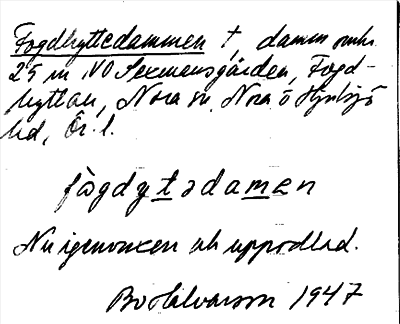 Fogdhyttedammen †, damm omkr.
25 m NO Sexmansgården, Fogd-
hyttan, Nora sn. Nora o Hjulsjö
hd, Ör. l.
fògdyt̲ədam̲en
Nu igenvuxen och uppodlad.
Bo Halvarson 1947